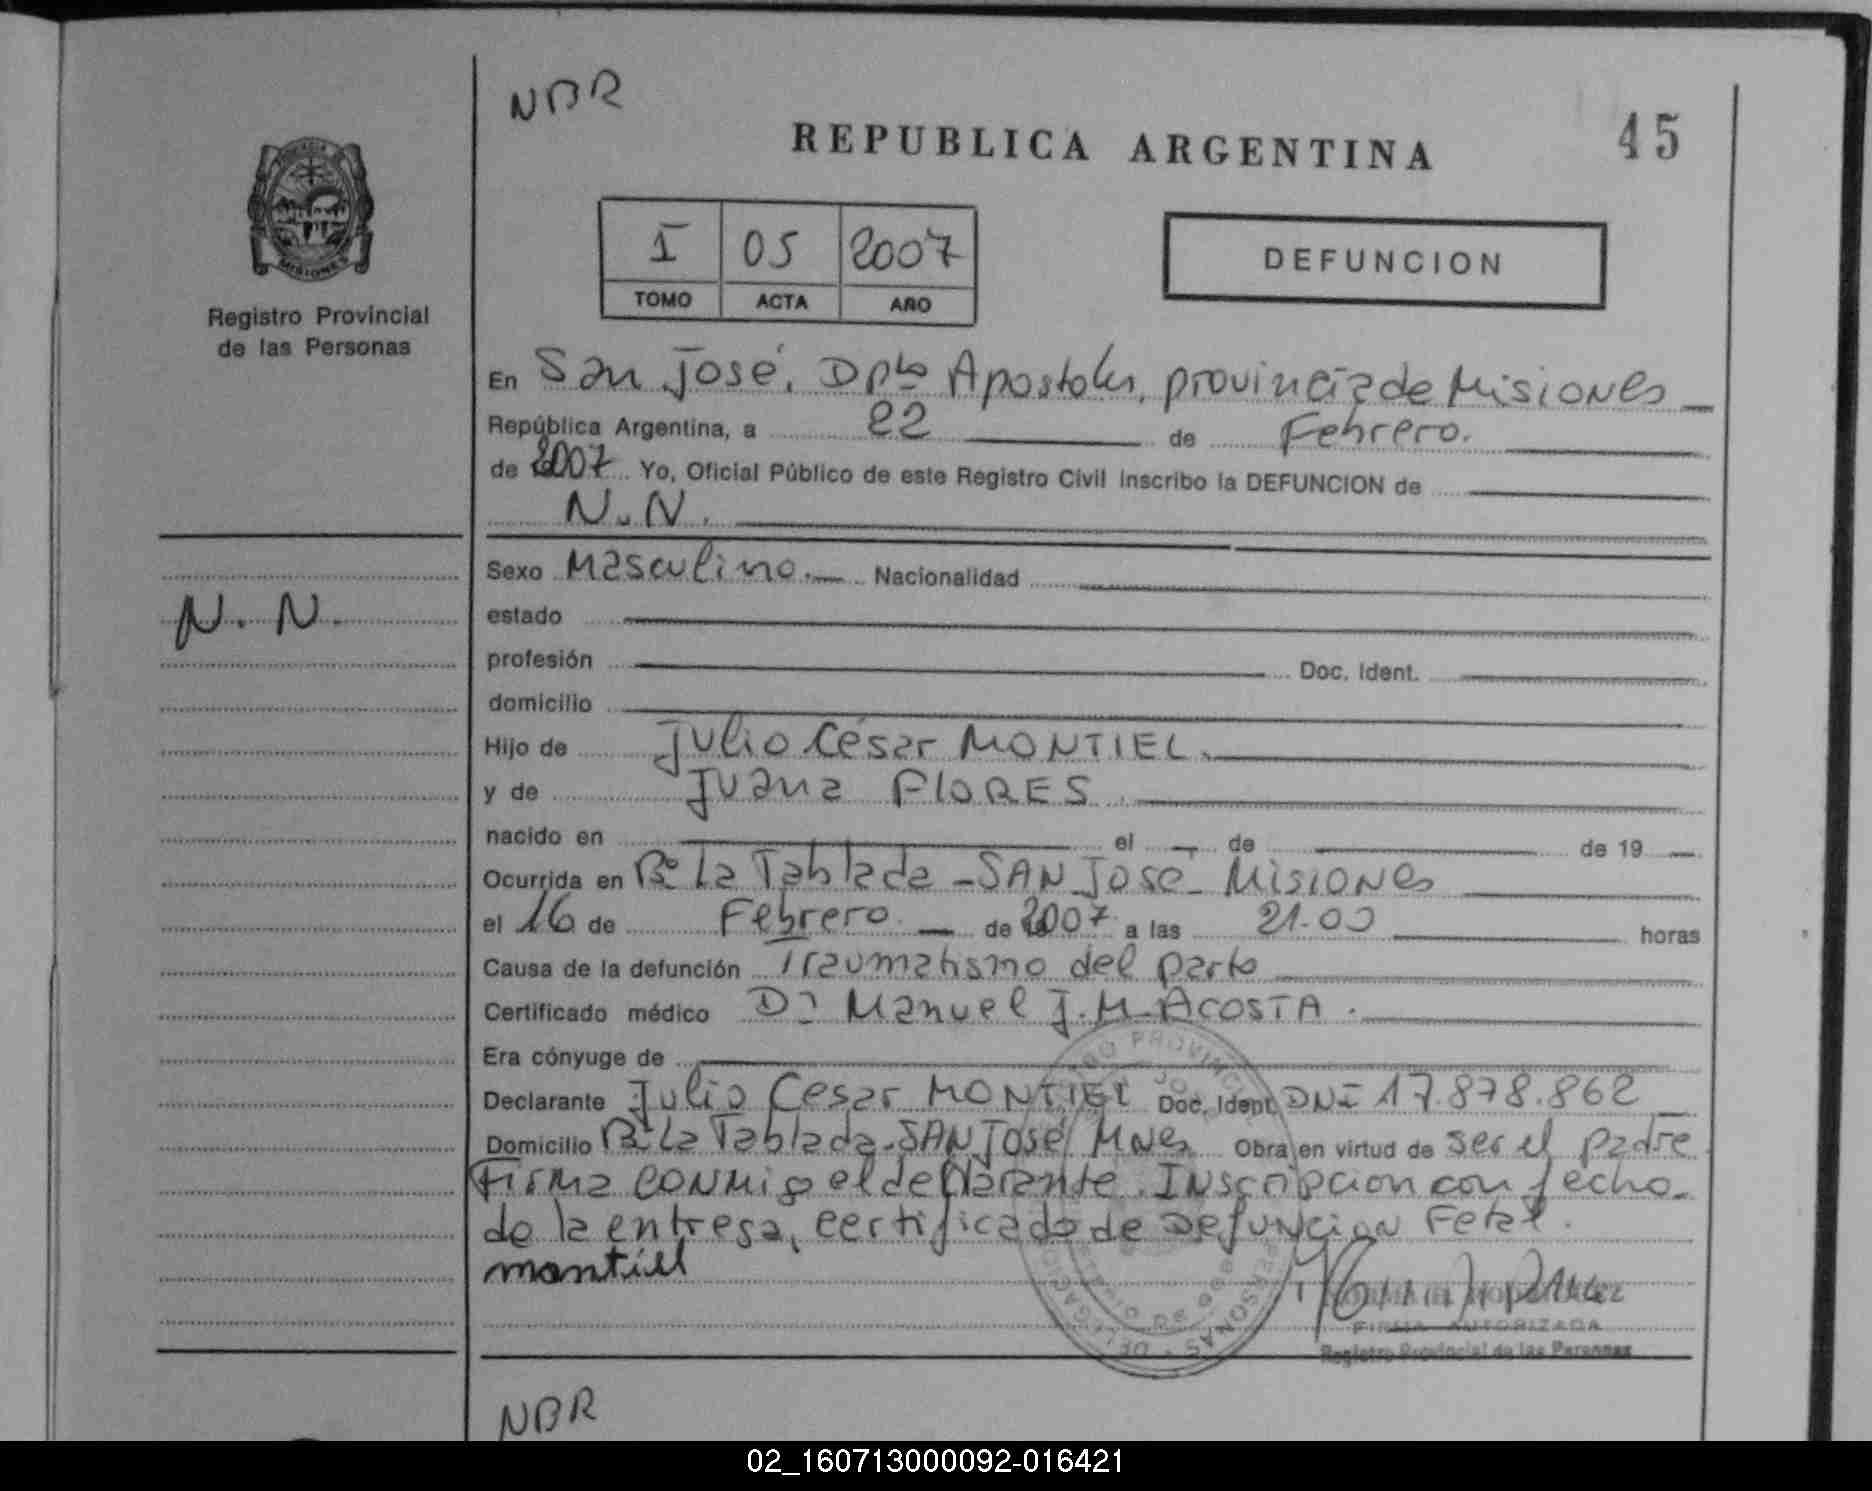 NBR
REPUBLICA ARGENTINA
45
PROVINCIA
MISIONES
Registro Provincial
de las Personas
I 05 2007
TOMO ACTA AÑO
DEFUNCION
En San José, Dpto Apostoles, provincia de Misiones
República Argentina, a 22 de Febrero.
de 2007 Yo, Oficial Público de este Registro Civil inscribo la DEFUNCION de
N.N.
N. N.
Sexo Masculino. Nacionalidad
estado
profesión Doc. Ident.
domicilio
Hijo de Julio César MONTIEL.
y de Juana FLORES.
nacido en el de de 19
Ocurrida en Bº La Tablada - SAN José - Misiones
el 16 de Febrero. de 2007 a las 21.00 horas
Causa de la defunción Traumatismo del parto
Certificado médico Dr Manuel J. M. ACOSTA.
Era cónyuge de
Declarante Julio Cesar MONTIEL Doc. Ident. DNI 17.878.862
Domicilio Bº La Tablada - SAN José Mnes Obra en virtud de ser el padre
Firma conmigo el declarante. Inscripcion con fecha
de la entrega, certificado de Defuncion Fetal.
montiel
FIRMA AUTORIZADA
Registro Provincial de las Personas
NBR
02_160713000092-016421